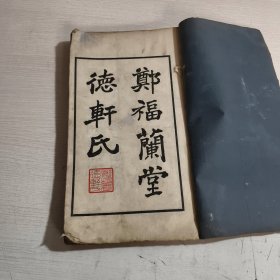 鄭福蘭堂
德軒氏